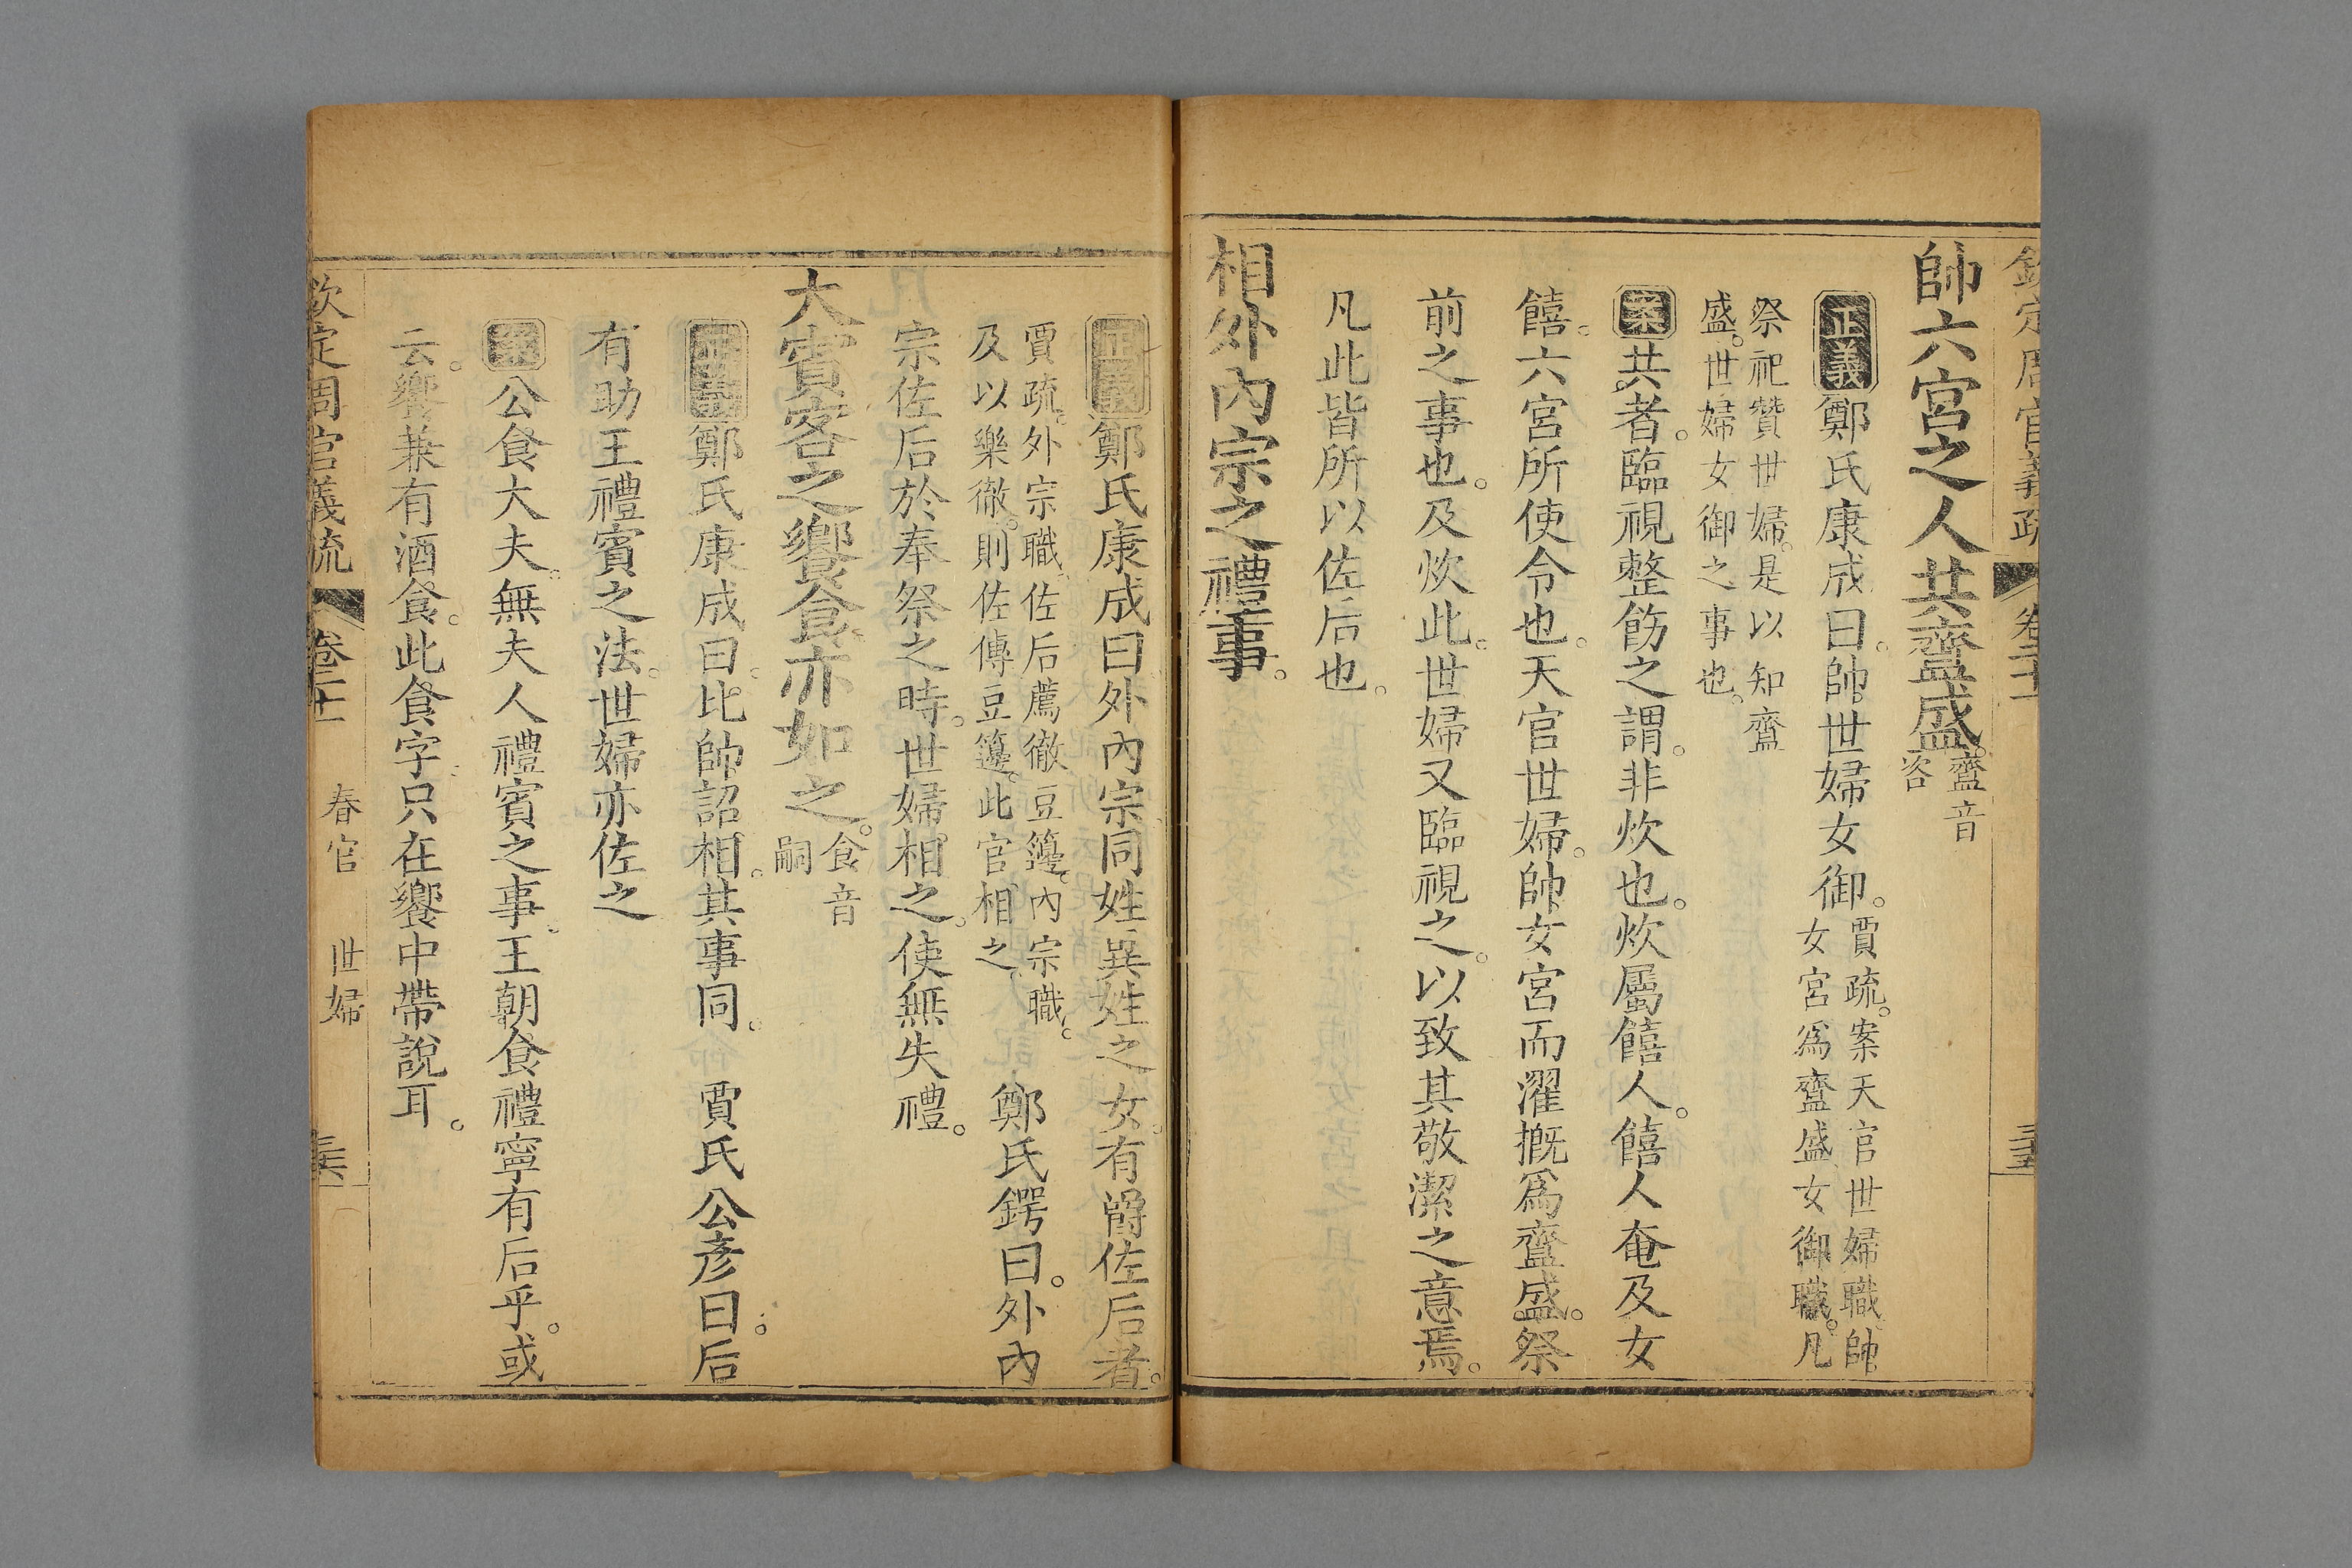 欽定周官義疏 卷二十一 三十五
帥六宮之人共齍盛齍音
咨
正義鄭氏康成曰帥世婦女御賈疏案天官世婦職帥
女宮為齍盛女御職凡
祭祀贊世婦是以知齍
盛世婦女御之事也
案共者臨視整飭之謂非炊也炊屬饎人饎人奄及女
饎六宮所使令也天官世婦帥女宮而濯摡爲齍盛祭
前之事也及炊此世婦又臨視之以致其敬潔之意焉
凡此皆所以佐后也
相外內宗之禮事
正義鄭氏康成曰外內宗同姓異姓之女有爵佐后者
賈疏外宗職佐后薦徹豆籩內宗職
及以樂徹則佐傳豆籩此官相之
鄭氏鍔曰外內
宗佐后於奉祭之時世婦相之使無失禮
大賓客之饗食亦如之食音
嗣
正義鄭氏康成曰比帥詔相其事同 賈氏公彥曰后
有助王禮賓之法世婦亦佐之
案公食大夫無夫人禮賓之事王朝食禮寧有后乎或
云饗兼有酒食此食字只在饗中帶說耳
欽定周官義疏 卷二十一 春官 世婦 三十六